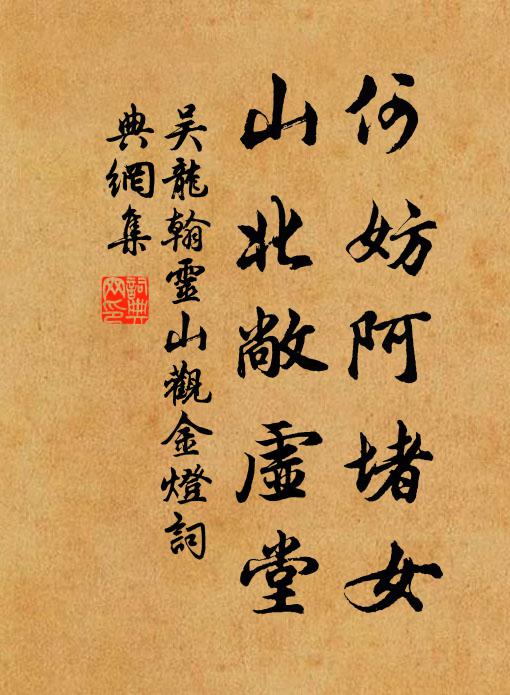 何妨阿堵女
山北敞虛堂
吴龍翰靈山觀金燈詞
典網集
詞典
网印